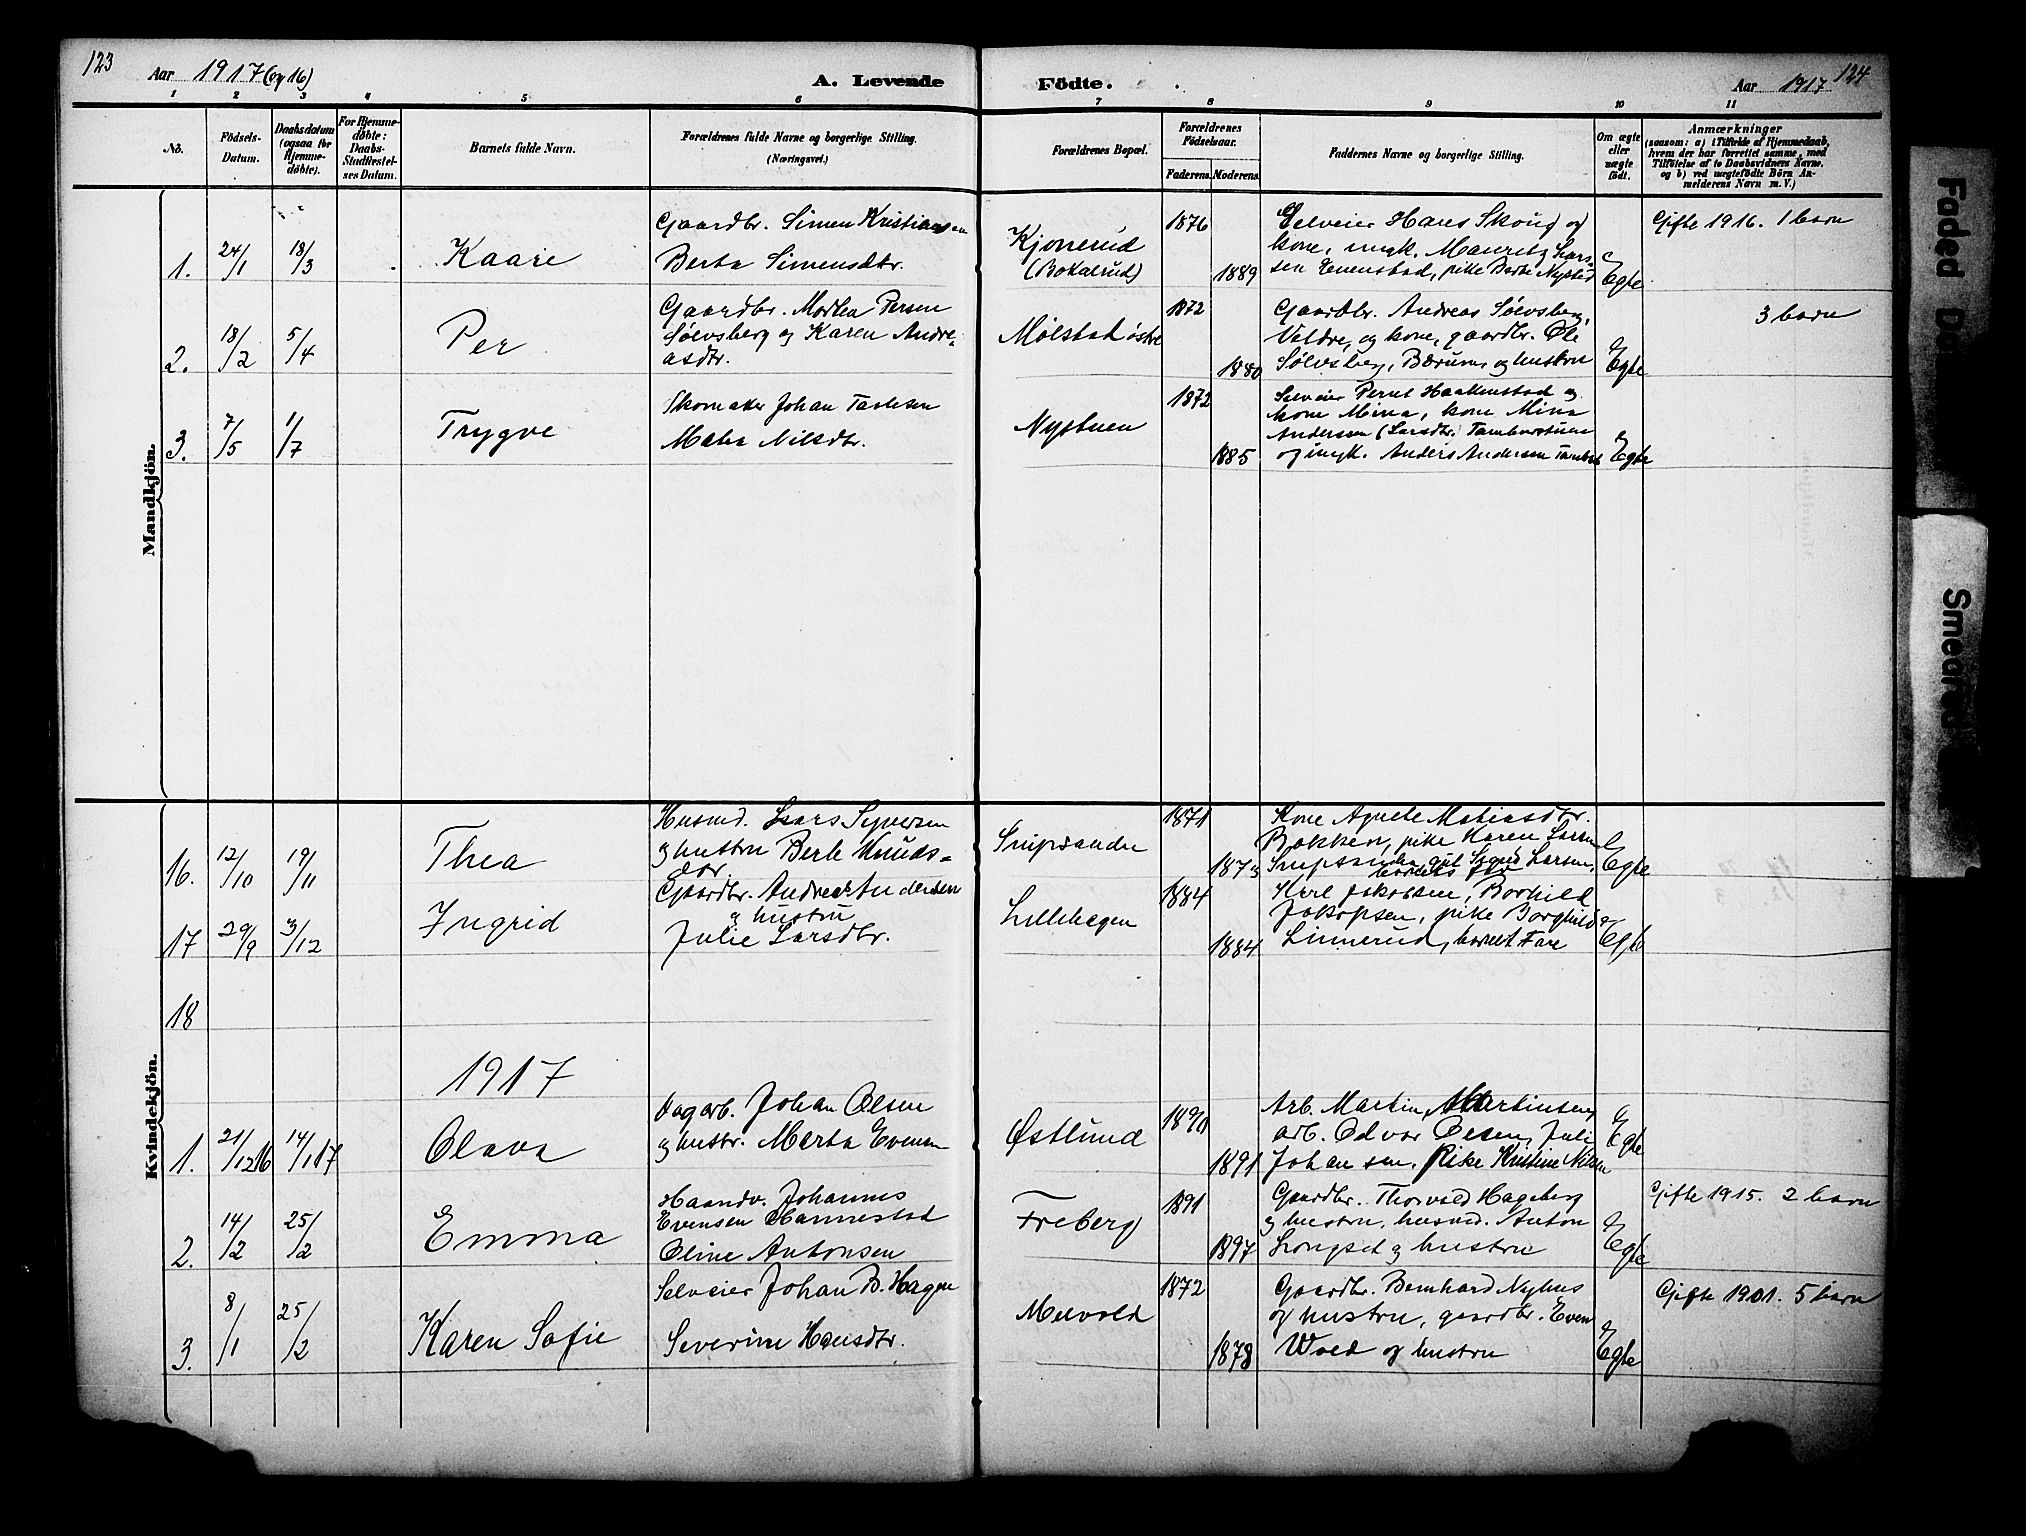 123
Aar 1917 (og 16)
A. Levende
Födte.
Aar 1917
124
1 2 3 4 5 6 7 8 9 10 11
No.
Födsels-
Datum.
Daabsdatum
(ogsaa for
Hjemme-
döbte).
For Hjemme-
döbte:
Daabs-
Stadfæstel-
ses Datum.
Barnets fulde Navn.
Forældrenes fulde Navne og borgerlige Stilling.
(Næringsvei.)
Forældrenes Bopæl.
Forældrenes
Födselsaar.
Faderens. Moderens.
Faddernes Navne og borgerlige Stilling.
Om ægte
eller
uægte
födt.
Anmærkninger
(saasom: a) i Tilfælde af Hjemmedaab,
hvem der har forrettet samme, med
Tilföielse af to Daabsvidners Navne,
og b) ved uægtefödte Börn An-
melderens Navn m. V.)
Mandkjön.
1. 24/1 18/3 Kaare
Gaardbr. Simen Kristiansen
Berta Simensdtr.
Kjonerud
(Bokalrud)
1876
1889
Selveier Hans Skoug og
kone, ungk. Mauritz Lars-
sen Evenstad, pike Berte Nystad
Egte
Gifte 1916. 1 barn
2. 18/2 5/4 Per
Gaardbr. Mathea Persen
Sølvsberg og Karen Andre-
asdtr.
Mølstad östre
1872
1880
Gaardbr. Andreas Sølvsberg,
Veldre, og kone, gaardbr. Ole
Sølvsberg, Bærum, og hustru
Egte
3 barn
3. 7/5 1/7 Trygve
Skomaker Johan
Nilsdtr.
Nystuen
1872
1885
Selveier Haakenstad og
kone Mina, kone Mina
Andersen (Larsdtr.)
og ungk. Anders Andersen
Egte
Kvindekjön.
16. 12/10 19/11 Thea
Husmd. Lars Syversen
og hustru Berte Knuds-
dtr.
1871
1873
Kone Agnete Matiasdtr.
Bakken, pike Karen Larsen
Sigrid Larsen,
barnets far
Egte
17 29/9 3/12 Ingrid
Gaardbr. Andreas Andersen
og hustru
Julie Larsdtr.
Lillehagen
1884
1884
Karl Jakobsen, Borhild
Jakopsen, pike Borghild
Linnerud, barnets Fare
Egte
18
1917
1. 21/12 16 14/1 17 Olava
Dagarb. Johan Olsen
og hustr. Marta Evensen
Østlund
1890
1891
Arb. Martin Martinsen,
arb. Edvar Olsen, Juli
Johansen, Pike Kristine Nilsen
Egte
2. 14/2 25/2 Emma
Haandv. Johannes
Evensen Hannestad
Oline Antonsen
Freberg
1891
1897
Gaardbr. Thorvald Hageberg
og hustru, husmd. Anton
Longset og hustru
Egte
Gifte 1915. 2 barn
3. 8/1 25/2 Karen Sofie
Selveier Johan B. Hagen
Severine Hansdtr.
Melvold
1872
1878
Gaardbr. Bernhard Nyhus
og hustru, gaardbr. Even
Wold og hustru
Egte
Gifte 1901. 5 barn
Smeared